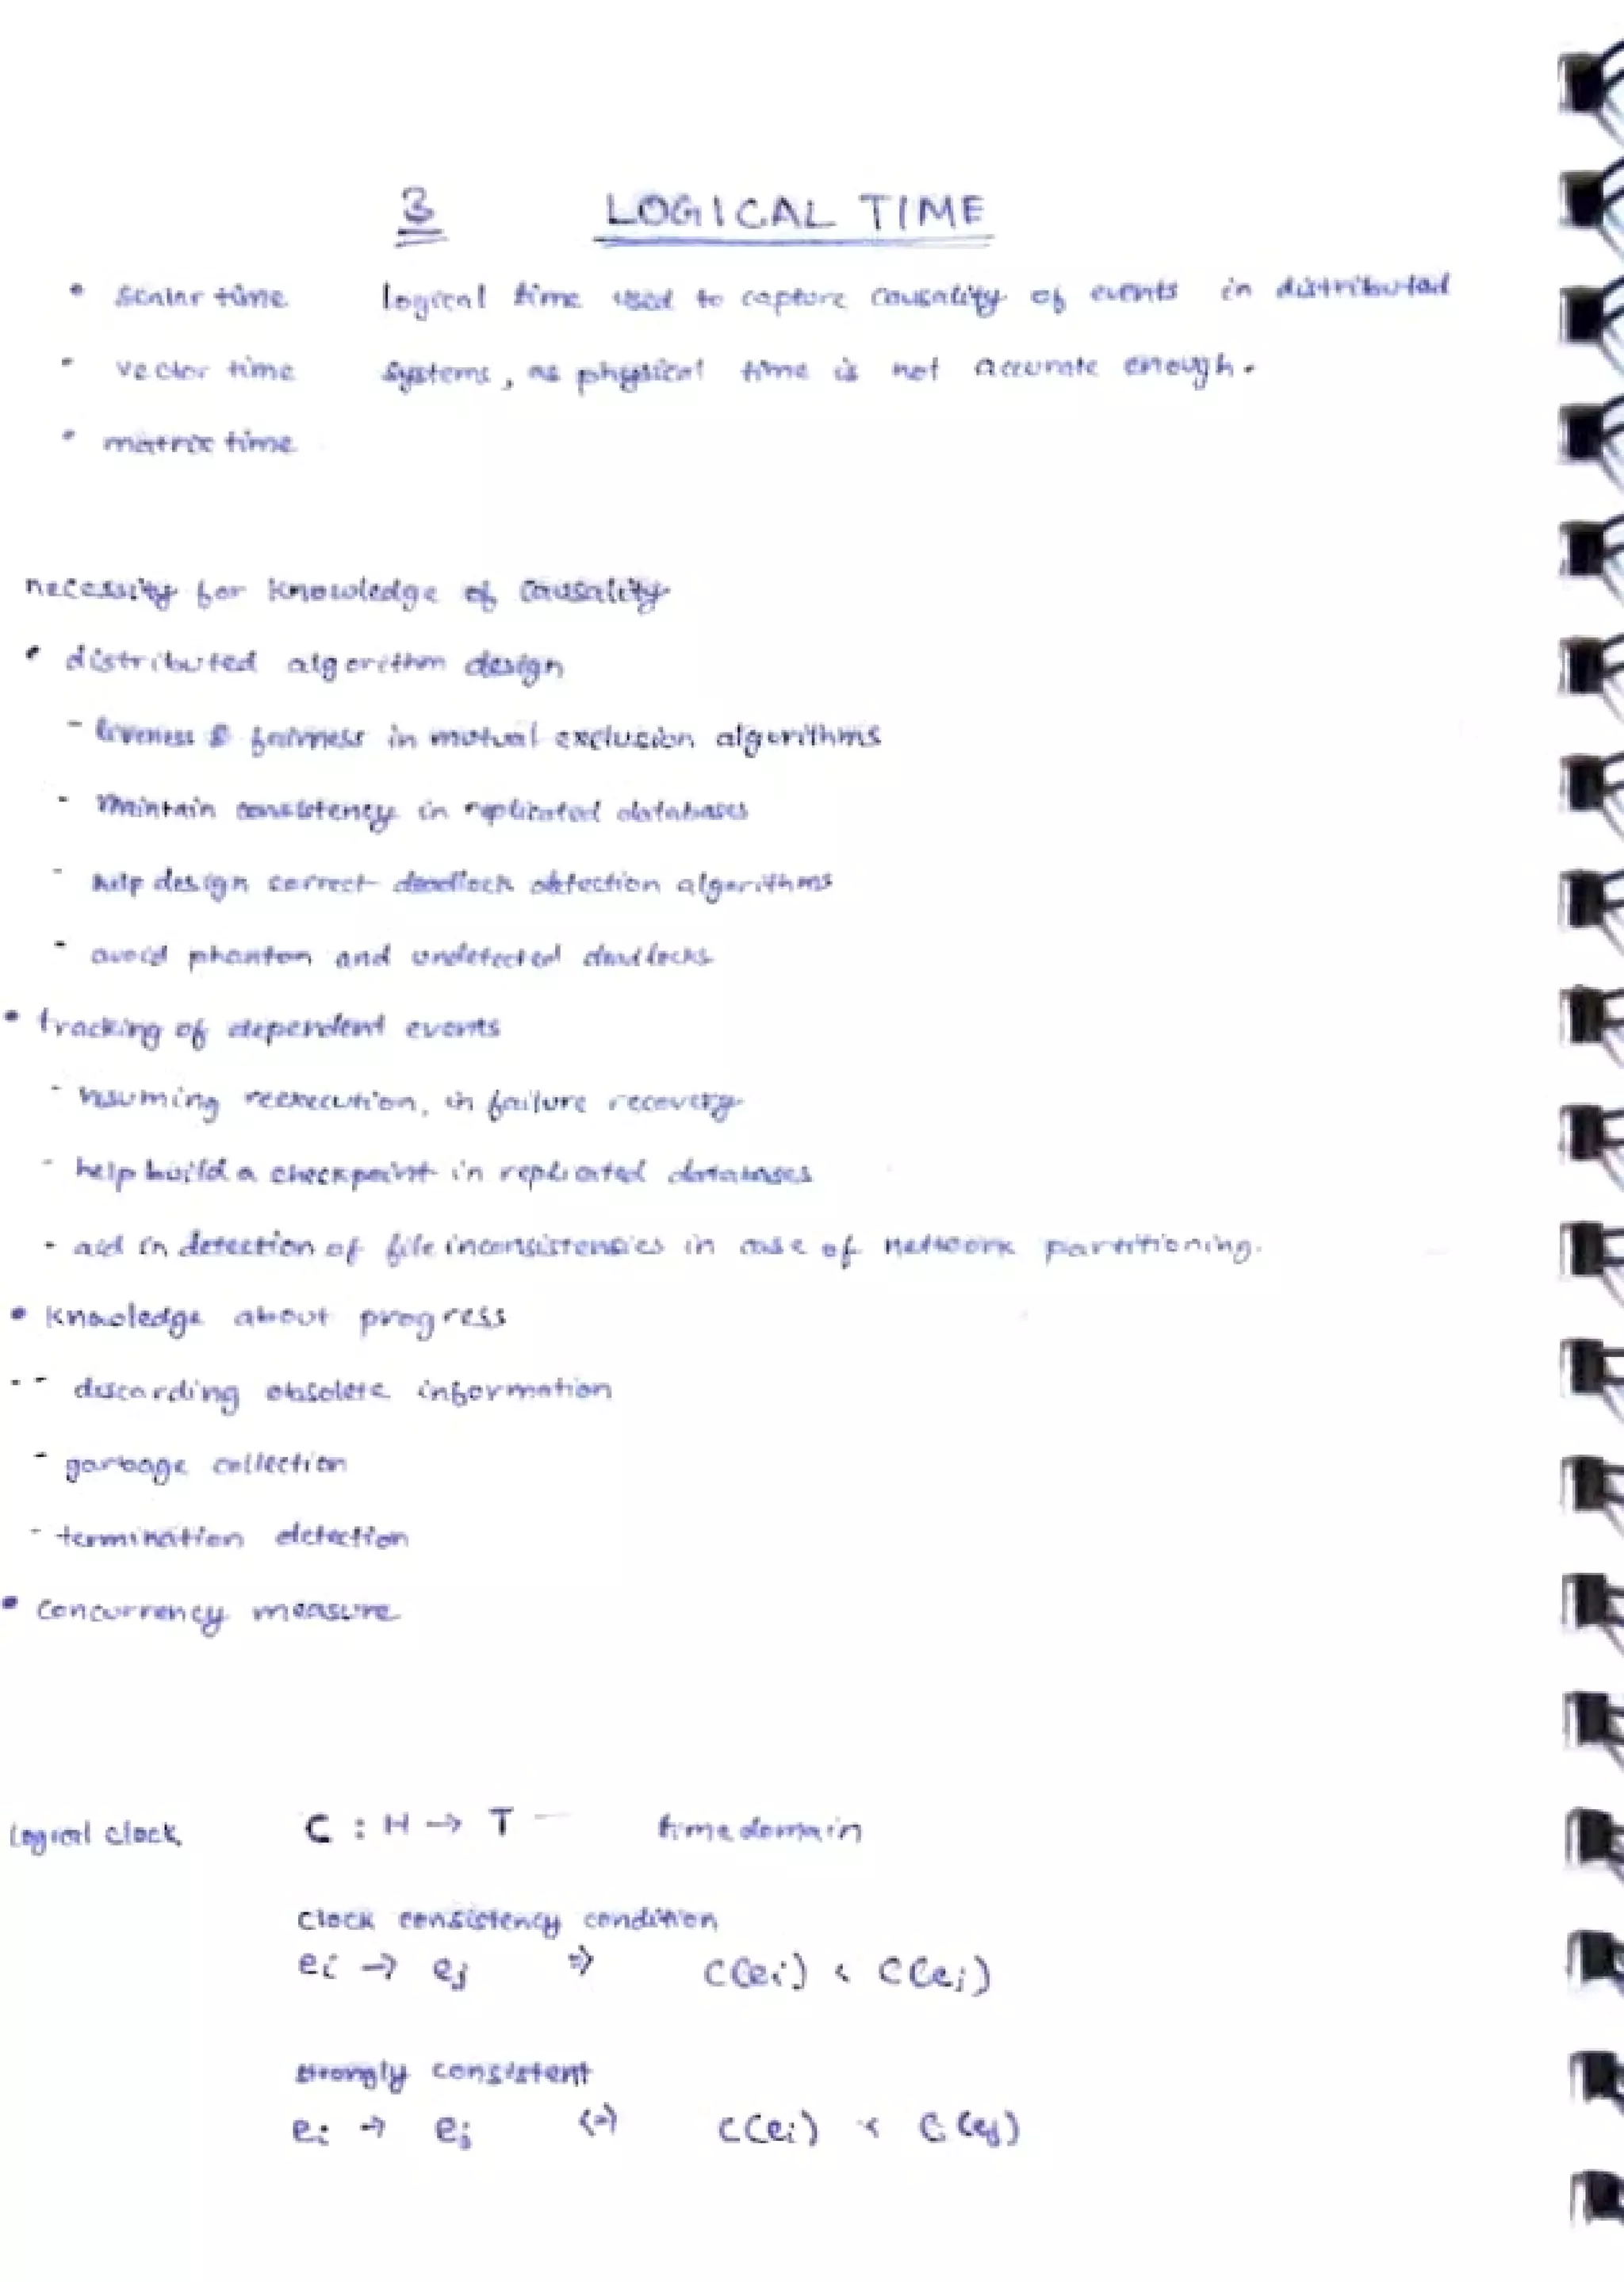 3 LOGICAL TIME
• scalar time logical time used to capture causality of events in distributed
• vector time systems, as physical time is not accurate enough.
• matrix time
necessity for knowledge of causality
• distributed algorithm design
- liveness & fairness in mutual exclusion algorithms
- maintain consistency in replicated databases
- help design correct deadlock detection algorithms
- avoid phantom and undetected deadlocks
• tracking of dependent events
- resuming reexecution, in failure recovery
- help build a checkpoint in replicated databases
- aid in detection of file inconsistencies in case of network partitioning.
• knowledge about progress
- - discarding obsolete information
- garbage collection
- termination detection
• concurrency measure
logical clock C : H → T time domain
clock consistency condition
ei → ej ⇒ C(ei) < C(ej)
strongly consistent
ei → ej ⇔ C(ei) < C(ej)